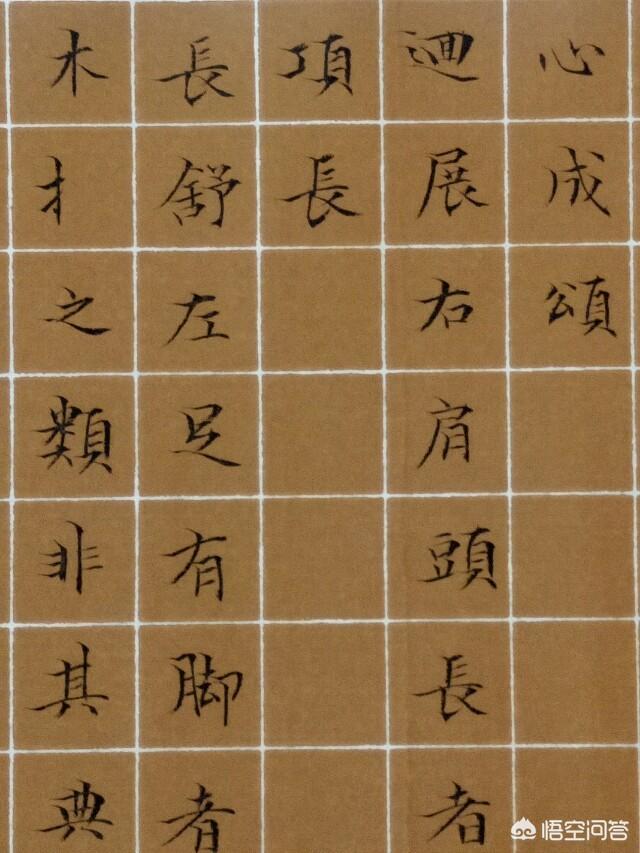 心成頌
迴展右肩頭長者
項長
長舒左足有脚者
木扌之類非其典
悟空问答